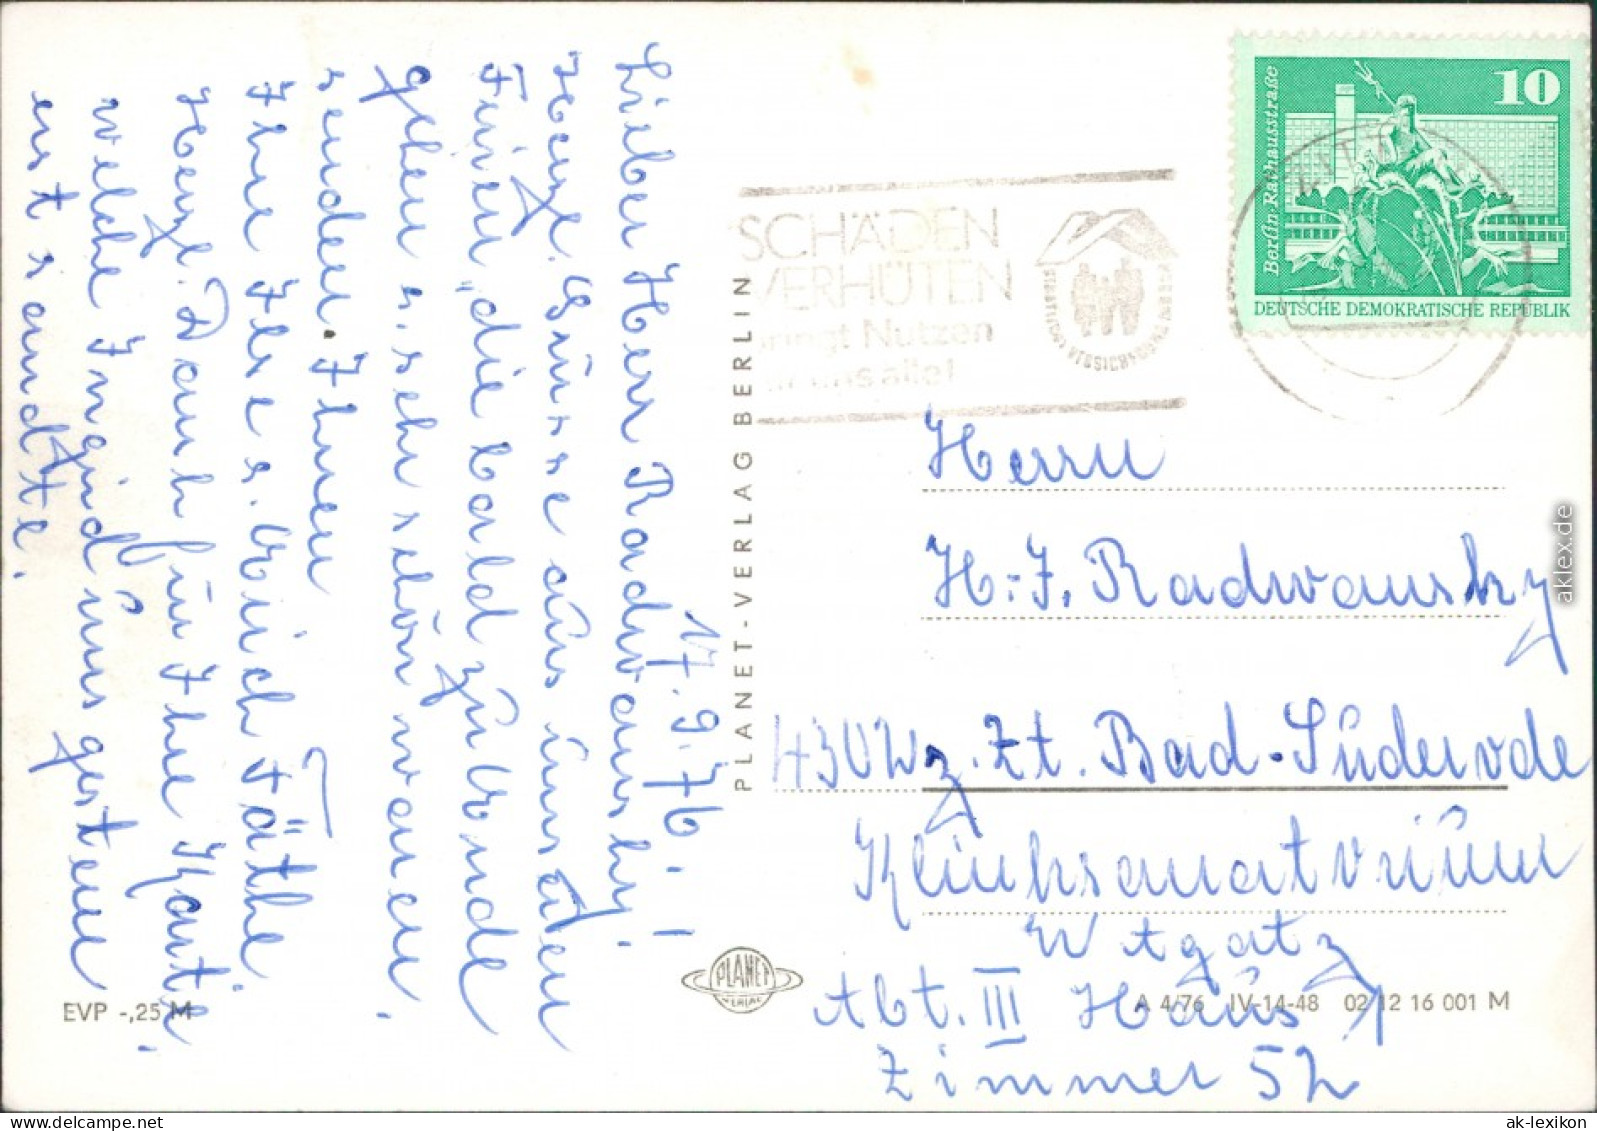 17.9.76.
Lieber Herr Radwansky!
Herzl. Grüsse aus unseren
Ferien, die bald zu Ende
gehen u. sehr schön waren,
senden Ihnen
Ihre Ilse u. Erich Fäthe.
Herzl. Dank für Ihre Karte,
welche Ingrid uns gestern
erst sandte.
EVP -,25 M
PLANET-VERLAG BERLIN
PLANET
VERLAG
SCHÄDEN
VERHÜTEN
bringt Nutzen
uns alle!
10
Berlin-Rathausstraße
DEUTSCHE DEMOKRATISCHE REPUBLIK
Herrn
H.-J. Radwansky
430 Wz. Zt. Bad-Süderode
Kliniksanatorium
Abt. III Haus 1
Zimmer 52
A 4/76 IV-14-48 02 12 16 001 M
aklex.de
ak-lexikon